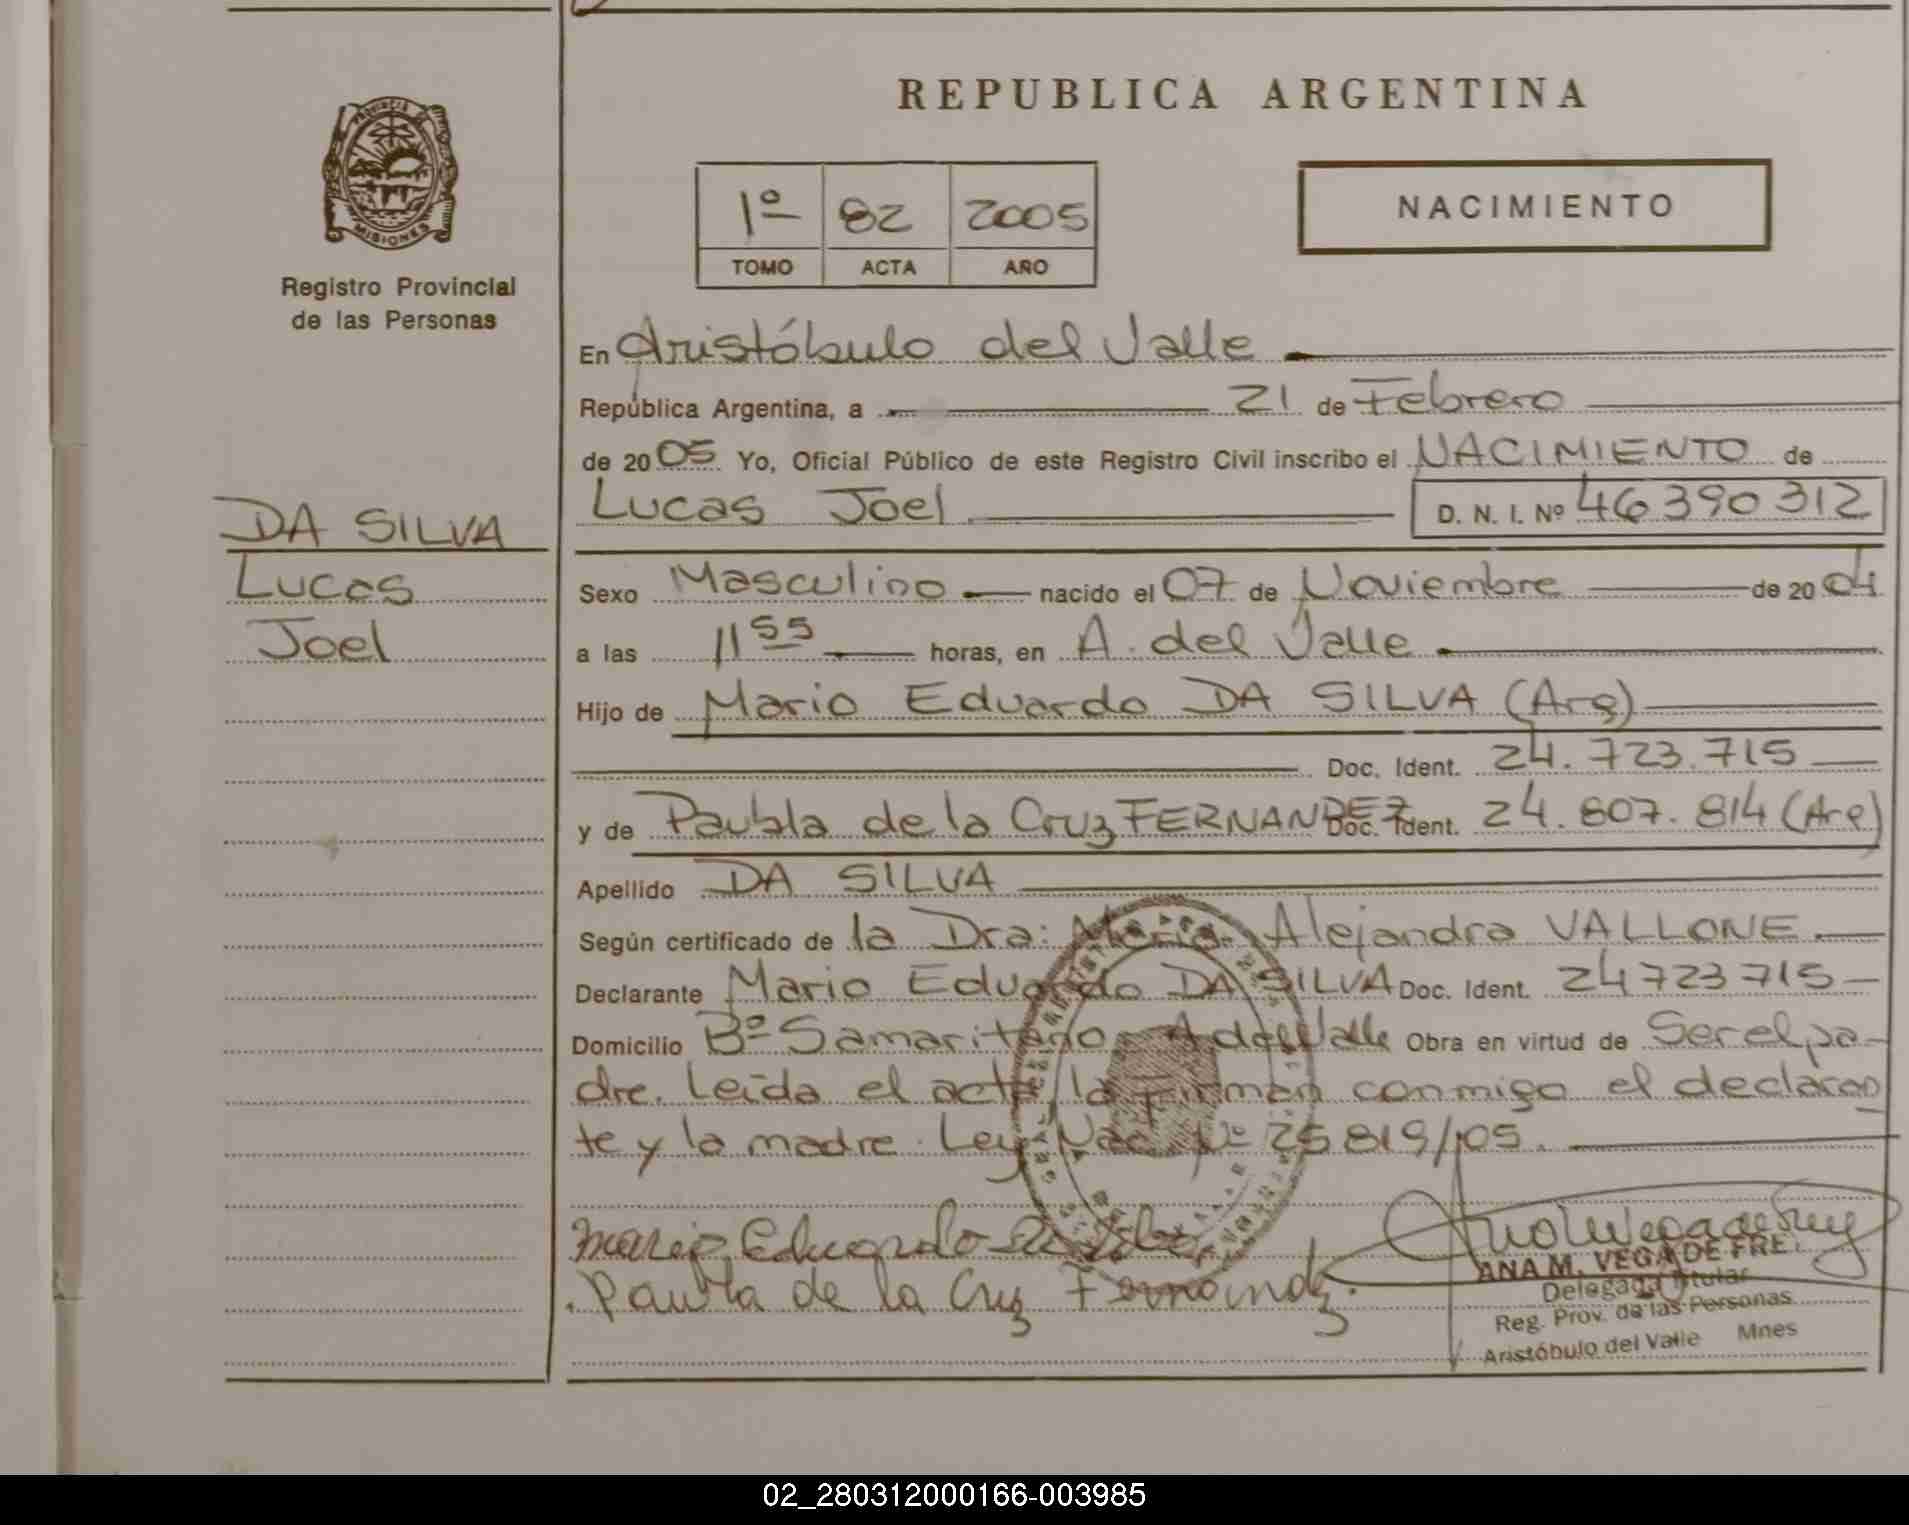 REPUBLICA ARGENTINA
PROVINCIA DE
MISIONES
Registro Provincial
de las Personas
1º 82 2005
TOMO ACTA AÑO
NACIMIENTO
En Aristóbulo del Valle
República Argentina, a 21 de Febrero
de 2005 Yo, Oficial Público de este Registro Civil inscribo el NACIMIENTO de
Lucas Joel D. N. I. Nº 46390312
DA SILVA
Lucas
Joel
Sexo Masculino nacido el 07 de Noviembre de 2004
a las 11 55 horas, en A. del Valle
Hijo de Mario Eduardo DA SILVA (Arg)
Doc. Ident. 24.723.715
y de Paubla de la Cruz FERNANDEZ Doc. Ident. 24.807.814 (Arg)
Apellido DA SILVA
Según certificado de la Dra: María Alejandra VALLONE.
Declarante Mario Eduardo DA SILVA Doc. Ident. 24723715
Domicilio Bº Samaritano A del Valle Obra en virtud de Ser el pa-
dre. Leída el acta, la Firman conmigo el declaran
te y la madre. Ley Nac Nº 25819/05.
Mario Eduardo Da Silva
Paubla de la Cruz Fernandz.
ANA M. VEGA DE FRE
Delegada Titular
Reg. Prov. de las Personas
Aristóbulo del Valle Mnes
02_280312000166-003985